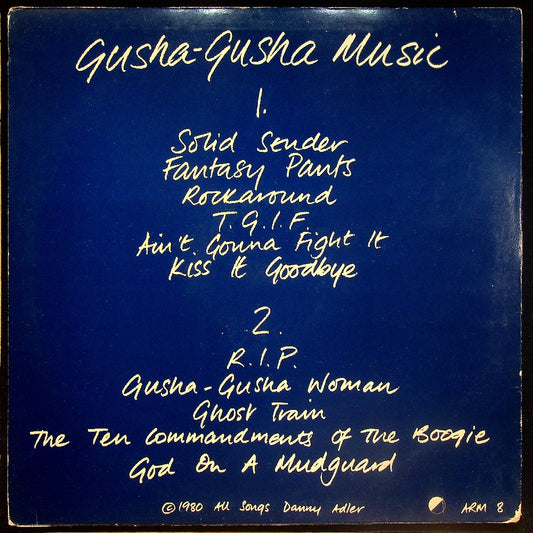 Gusha-Gusha Music
1.
Solid Sender
Fantasy Pants
Rockaround
T.G.I.F.
Ain't Gonna Fight It
Kiss It Goodbye
2.
R.I.P.
Gusha-Gusha Woman
Ghost Train
The Ten Commandments Of The Boogie
God On A Mudguard
©1980 All Songs Danny Adler
ARM 8